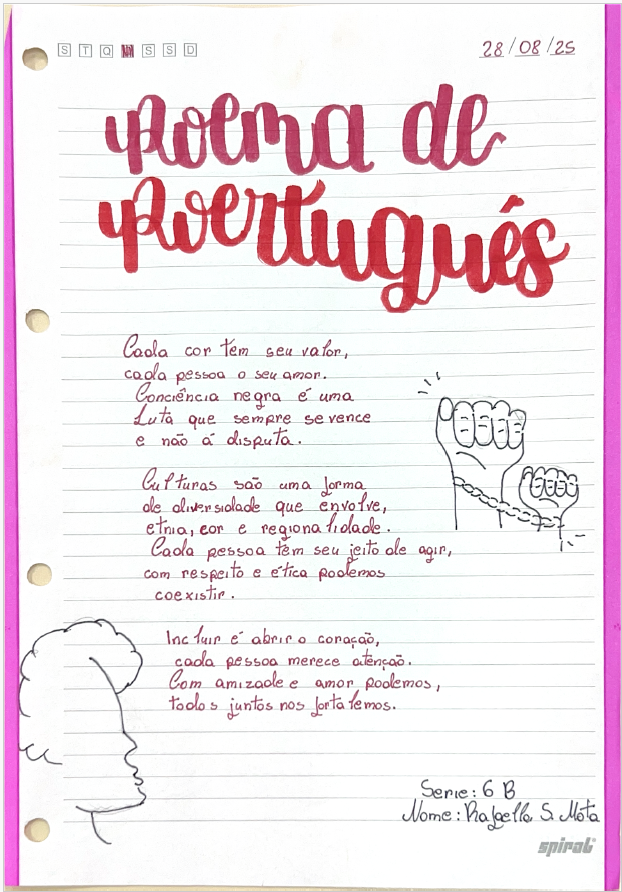 S T Q Q S S D
28/08/25
Poema de
Português
Cada cor tem seu valor,
cada pessoa o seu amor.
Conciência negra é uma
Luta que sempre se vence
e não á disputa.
Culturas são uma forma
de diversidade que envolve,
etnia, cor e regionalidade.
Cada pessoa tem seu jeito de agir,
com respeito e ética podemos
coexistir.
Incluir é abrir o coração,
cada pessoa merece atenção.
Com amizade e amor podemos,
todos juntos nos fortalemos.
Serie: 6 B
Nome: Rafaella S. Mota
spiral